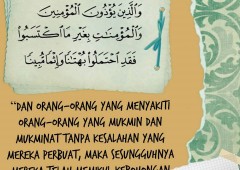 وَالَّذِينَ يُؤْذُونَ الْمُؤْمِنِينَ
وَالْمُؤْمِنَاتِ بِغَيْرِ مَا اكْتَسَبُوا
فَقَدِ احْتَمَلُوا بُهْتَانًا وَإِثْمًا مُّبِينًا
"DAN ORANG-ORANG YANG MENYAKITI
ORANG-ORANG YANG MUKMIN DAN
MUKMINAT TANPA KESALAHAN YANG
MEREKA PERBUAT, MAKA SESUNGGUHNYA
MEREKA TELAH MEMIKUL KEBOHONGAN